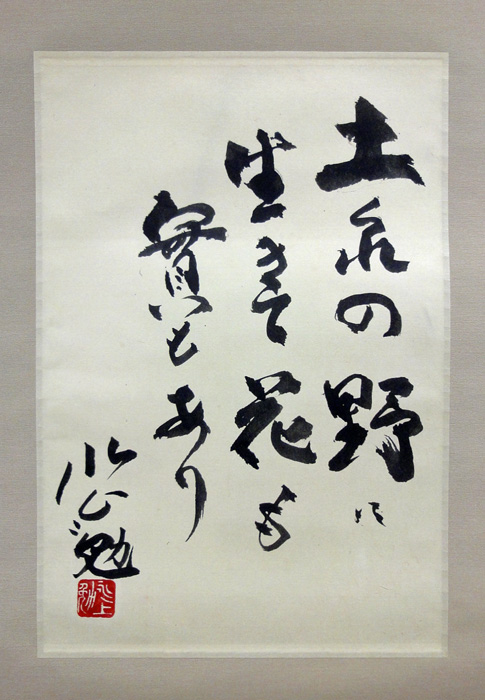 土泉の野に
生きて花も
實もあり
水上勉
水上勉